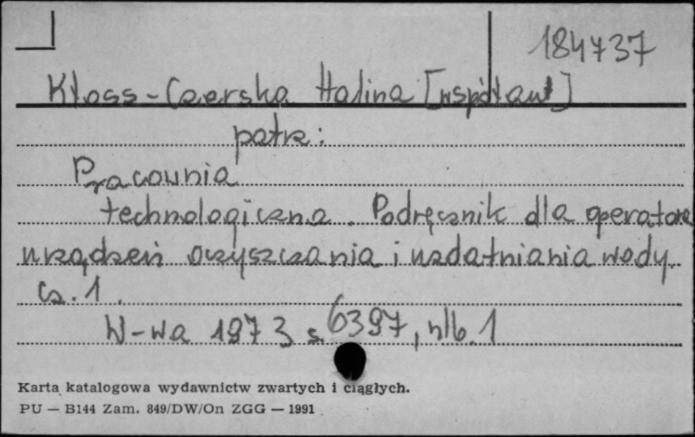 184737
Kłoss-Czerska Halina [współaut]
patrz:
Pracownia
technologiczna. Podręcznik dla operatora
urządzeń oczyszczania i uzdatniania wody.
Cz. 1.
W-wa 1973 s. 6397, nlb. 1
Karta katalogowa wydawnictw zwartych i ciągłych.
PU — B144 Zam. 849/DW/On ZGG — 1991